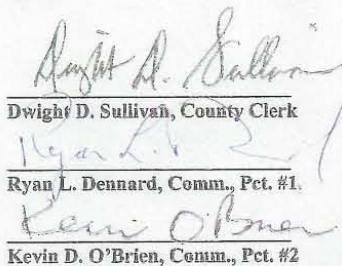 Dwight D. Sullivan
Dwight D. Sullivan, County Clerk
Ryan L. Dennard
Ryan L. Dennard, Comm., Pct. #1
Kevin O'Brien
Kevin D. O'Brien, Comm., Pct. #2